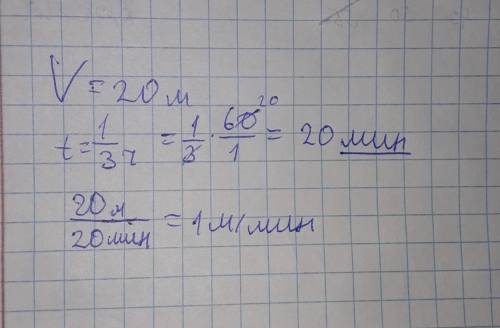 V = 20 м
t = 1/3 ч = 1/3 · 60/1 20 = 20 мин
20 м/20 мин = 1 м/мин